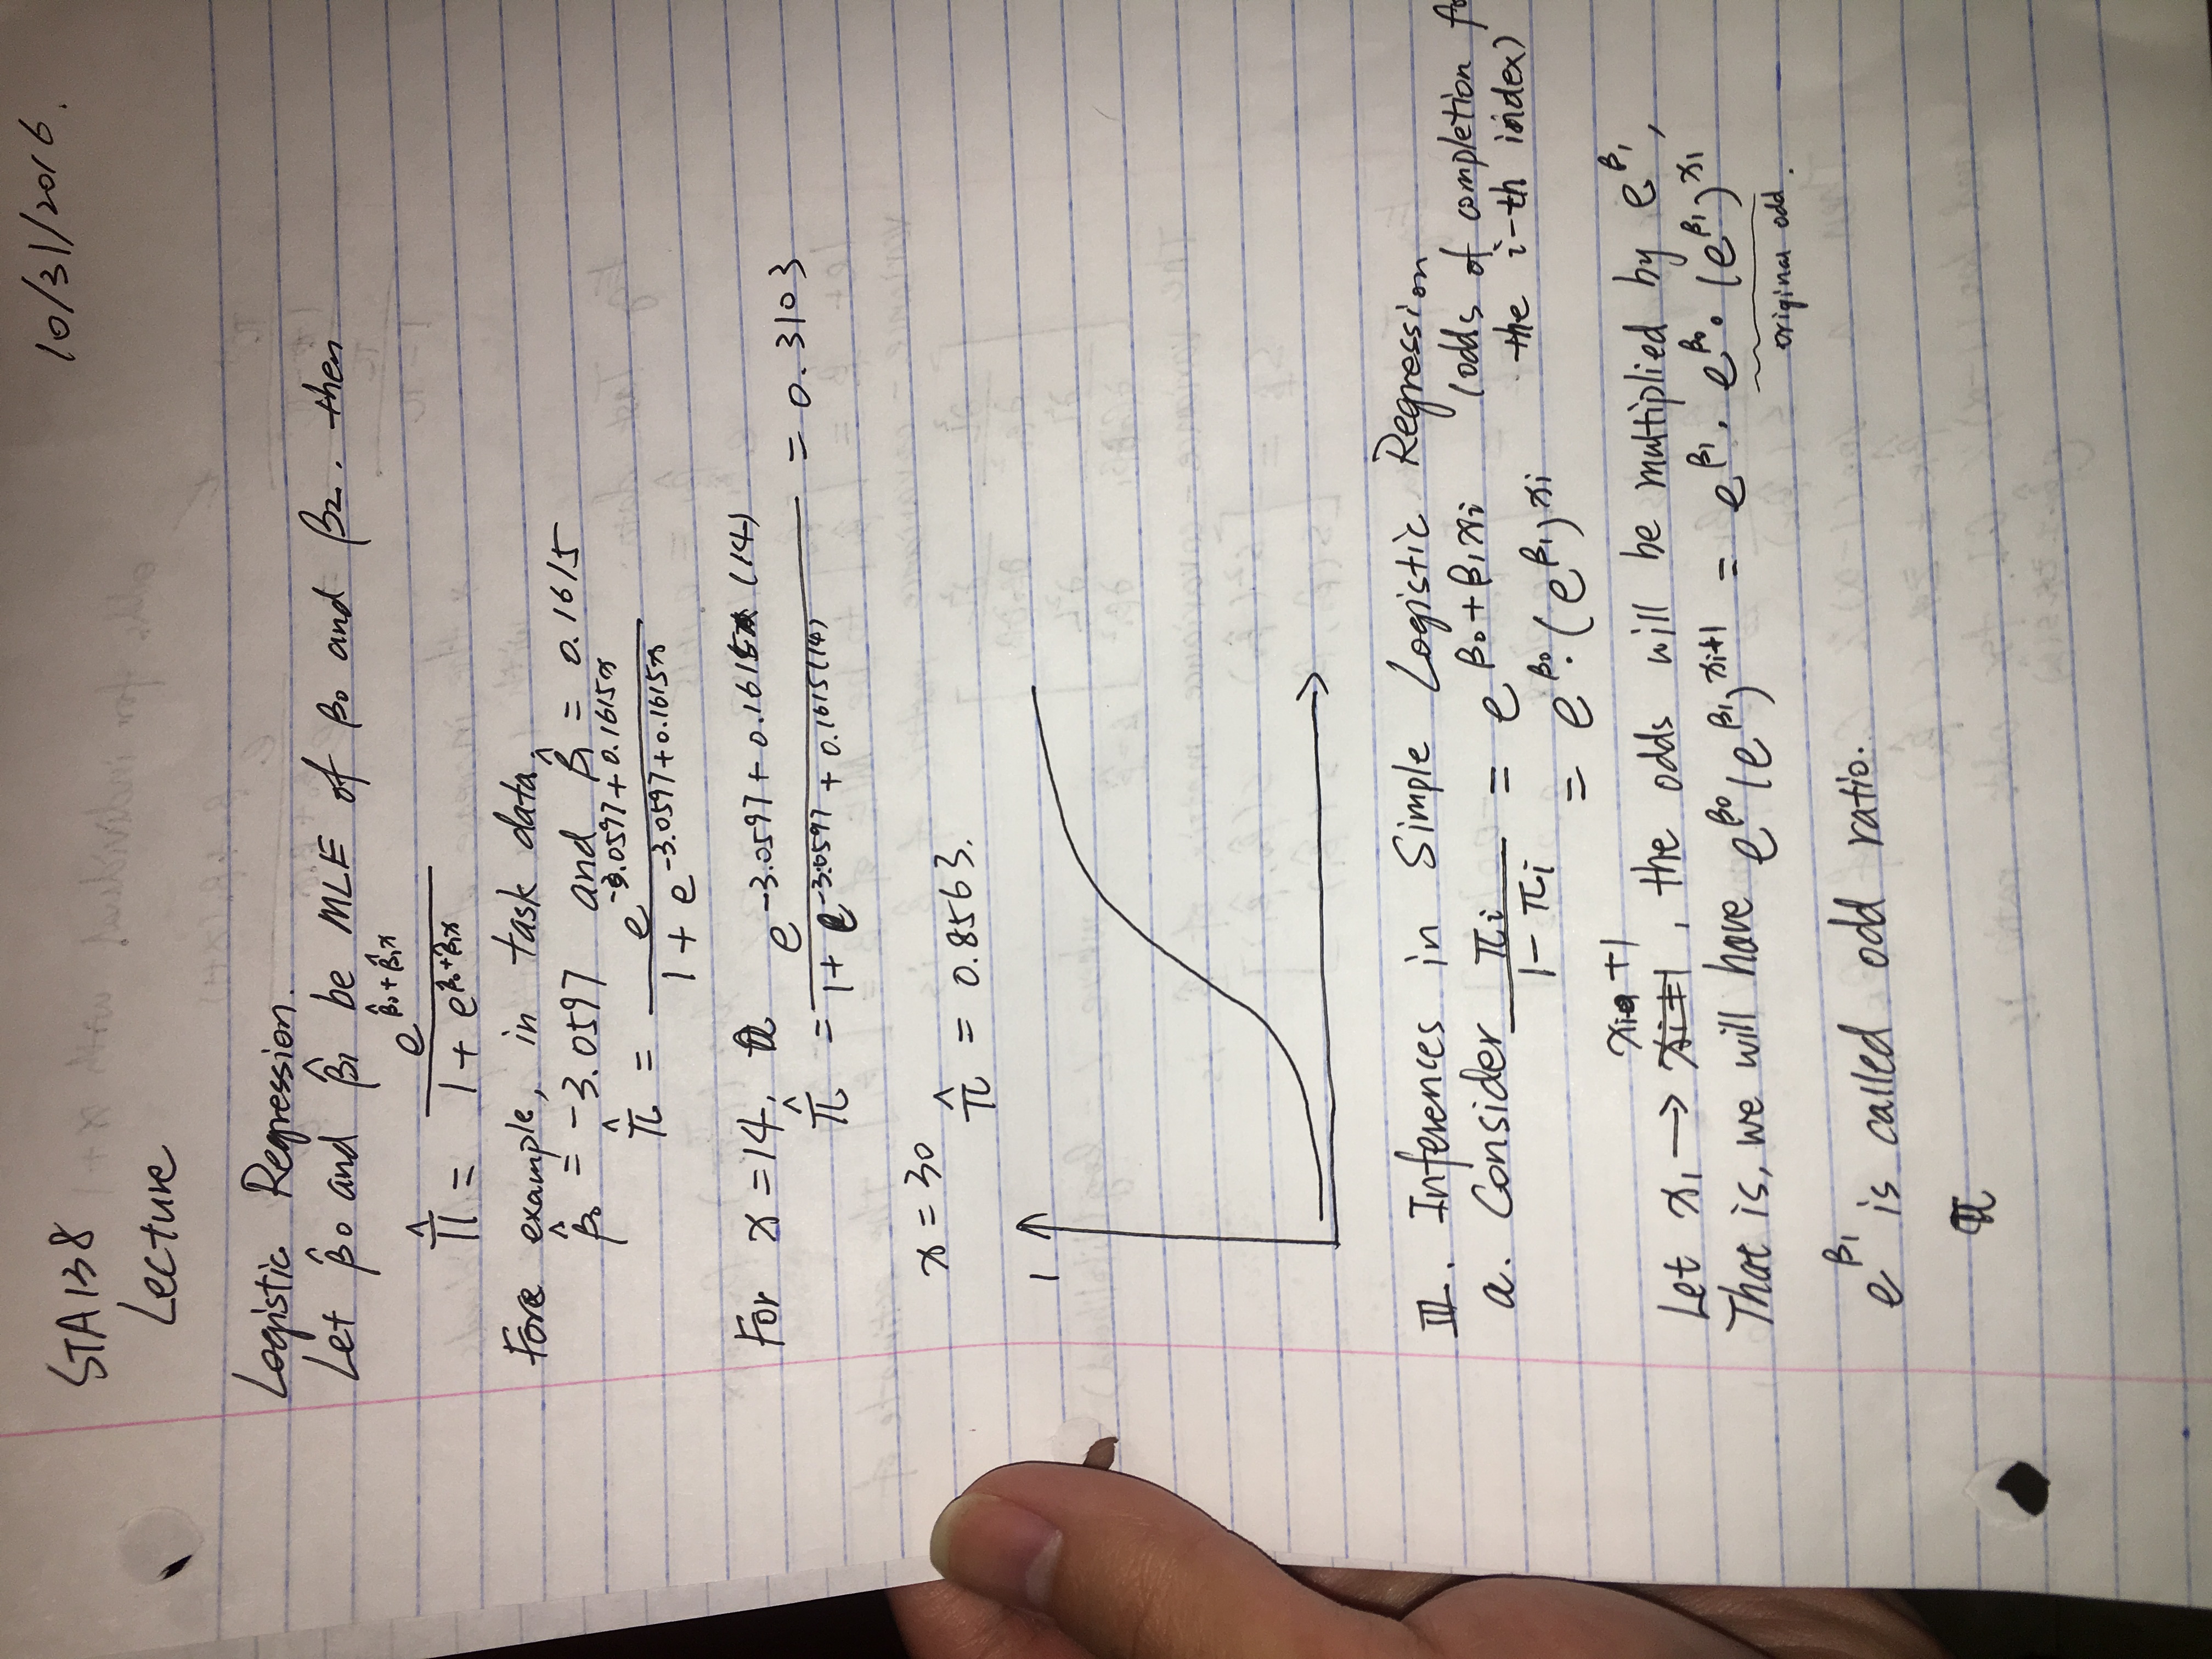 10/31/2016.
STA138
Lecture
Logistic Regression.
Let β̂0 and β̂1 be MLE of β0 and β2. then
π̂ = e^(β̂0+β̂1x) / (1 + e^(β̂0+β̂1x))
Fore example, in task data,
β̂0 = -3.0597 and β̂1 = 0.1615
π̂ = e^(-3.0597+0.1615x) / (1 + e^(-3.0597+0.1615x))
For x=14,
π̂ = e^(-3.0597+0.1615(14)) / (1 + e^(-3.0597+0.1615(14))) = 0.3103
x=30
π̂ = 0.8563.
1
III. Inferences in Simple Logistic Regression
a. Consider πi / (1-πi) = e^(β0+β1xi) (odds of completion
the i-th index)
= e^β0·(e^β1)^xi
xi+1
Let x1 → xi+1, the odds will be multiplied by e^β1,
That is, we will have e^β0(e^β1)^(xi+1) = e^β1 · e^β0 · (e^β1)^x1
original odd.
e^β1 is called odd ratio.
π